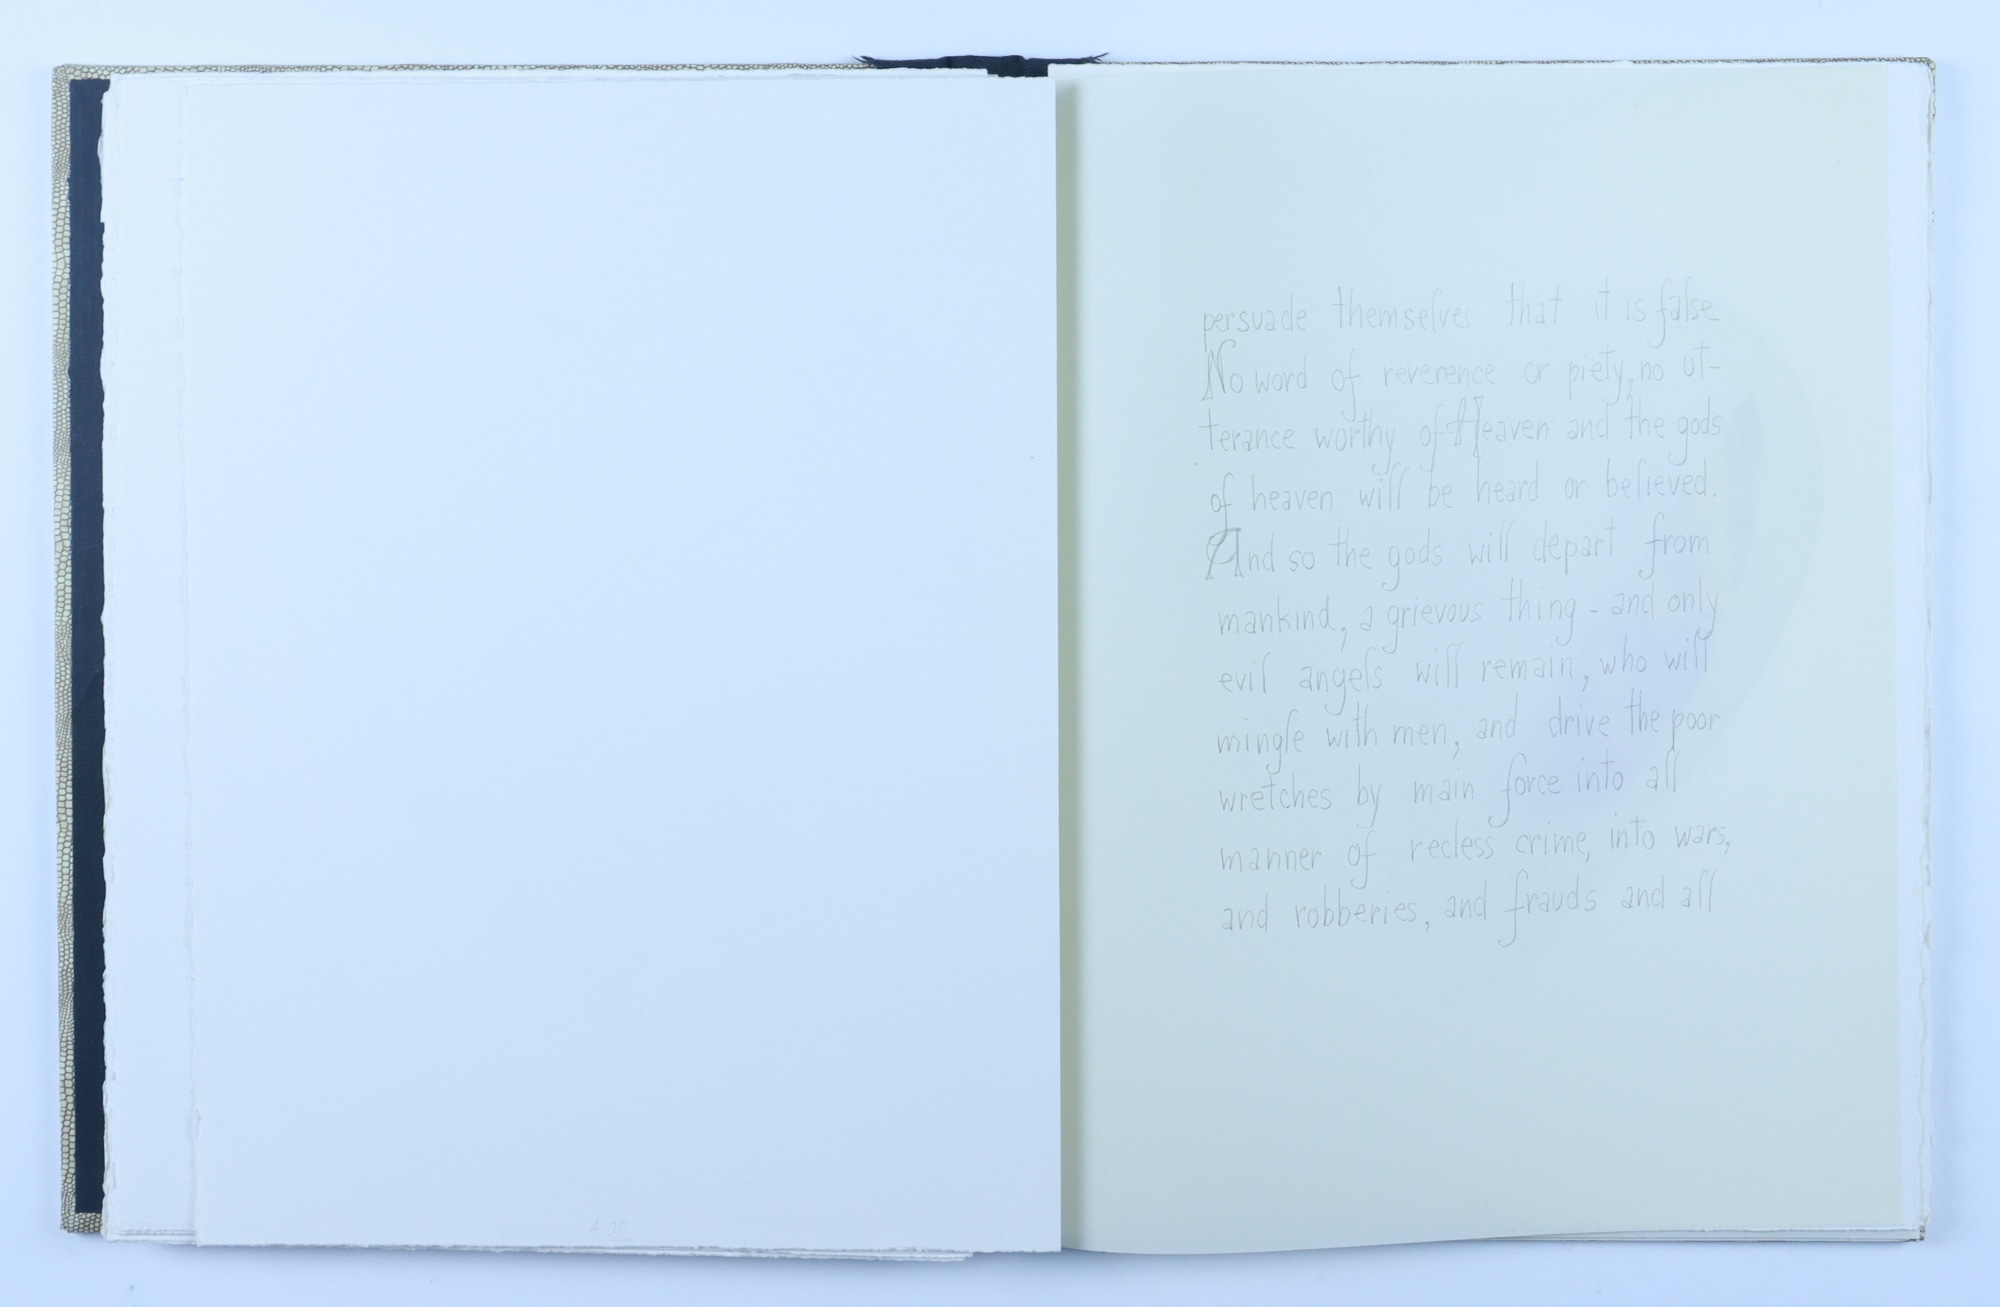 persuade themselves that it is false
No word of reverence or piety, no ut-
terance worthy of Heaven and the gods
of heaven will be heard or believed.
And so the gods will depart from
mankind, a grievous thing - and only
evil angels will remain, who will
mingle with men, and drive the poor
wretches by main force into all
manner of recless crime, into wars,
and robberies, and frauds and all